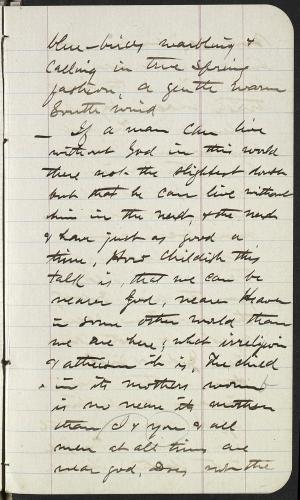 blue-birds warbling &
calling in true Spring
fashion, a gentle warm
South wind
— If a man can live
without God in this world
there not the slightest doubt
but that he can live without
him in the next, & the next
& have just as good a
time, How childish this
talk is, that we can be
nearer God, nearer Heaven
in some other world than
we are here; what irreligion
& atheism it is, The child
in its mothers womb
is no nearer its mother
than I & you & all
men at all times are
near god, Does not the